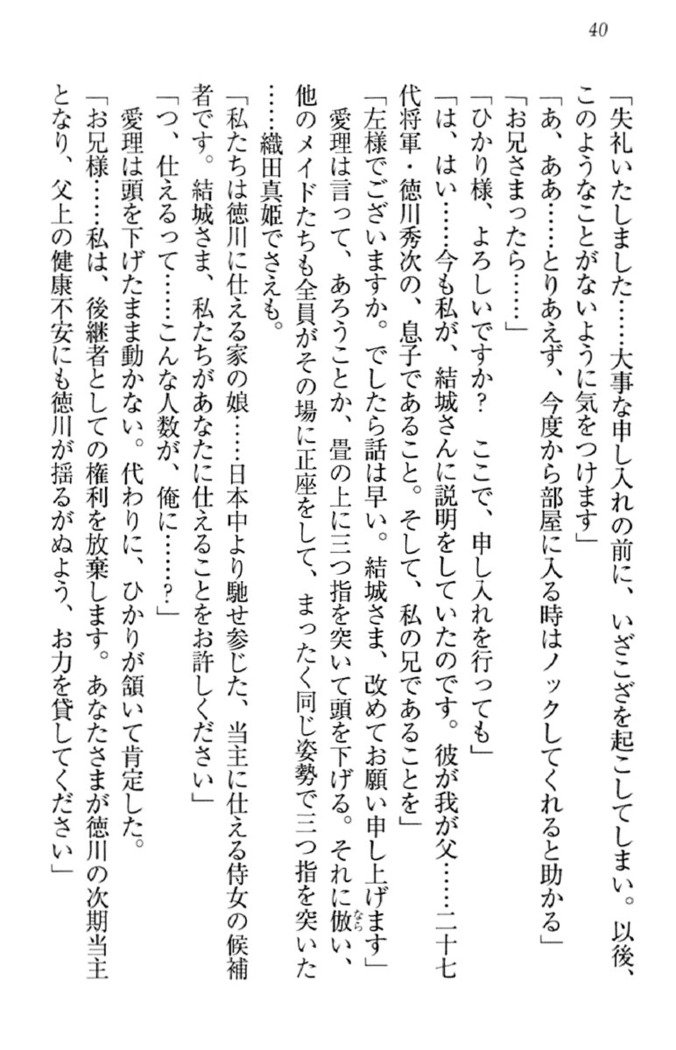 40
「失礼いたしました……大事な申し入れの前に、いざこざを起こしてしまい。以後、
このようなことがないように気をつけます」
「あ、ああ……とりあえず、今度から部屋に入る時はノックしてくれると助かる」
「お兄さまったら……」
「ひかり様、よろしいですか？　ここで、申し入れを行っても」
「は、はい……今も私が、結城さんに説明をしていたのです。彼が我が父……二十七
代将軍・徳川秀次の、息子であること。そして、私の兄であることを」
「左様でございますか。でしたら話は早い。結城さま、改めてお願い申し上げます」
愛理は言って、あろうことか、畳の上に三つ指を突いて頭を下げる。それに倣い、
なら
他のメイドたちも全員がその場に正座をして、まったく同じ姿勢で三つ指を突いた
……織田真姫でさえも。
「私たちは徳川に仕える家の娘……日本中より馳せ参じた、当主に仕える侍女の候補
者です。結城さま、私たちがあなたに仕えることをお許しください」
「つ、仕えるって……こんな人数が、俺に……？」
愛理は頭を下げたまま動かない。代わりに、ひかりが頷いて肯定した。
「お兄様……私は、後継者としての権利を放棄します。あなたさまが徳川の次期当主
となり、父上の健康不安にも徳川が揺るがぬよう、お力を貸してください」